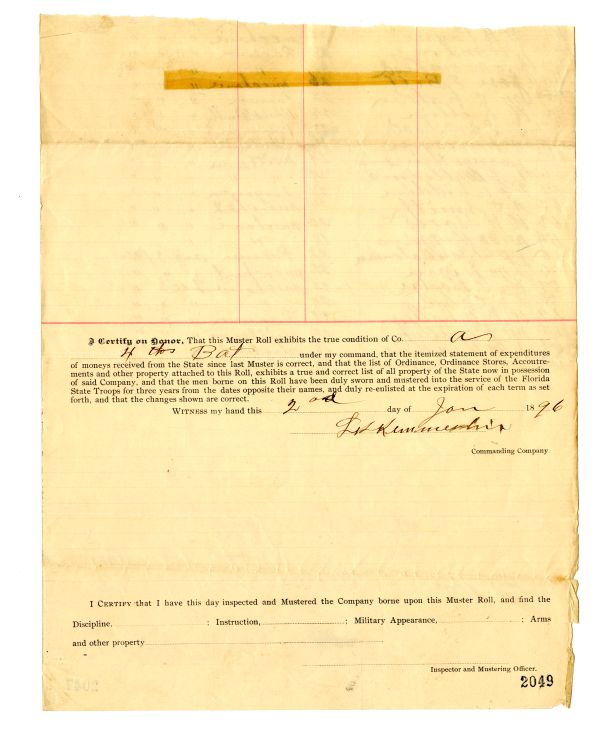 I Certify on Honor, That this Muster Roll exhibits the true condition of Co. a
4 ths Bat under my command, that the itemized statement of expenditures
of moneys received from the State since last Muster is correct, and that the list of Ordinance, Ordinance Stores, Accoutre-
ments and other property attached to this Roll, exhibits a true and correct list of all property of the State now in possession
of said Company, and that the men borne on this Roll have been duly sworn and mustered into the service of the Florida
State Troops for three years from the dates opposite their names, and duly re-enlisted at the expiration of each term as set
forth, and that the changes shown are correct.
WITNESS my hand this 2 nd day of Jan 1896
Commanding Company
I CERTIFY that I have this day inspected and Mustered the Company borne upon this Muster Roll, and find the
Discipline, : Instruction, : Military Appearance, : Arms
and other property
Inspector and Mustering Officer.
2049